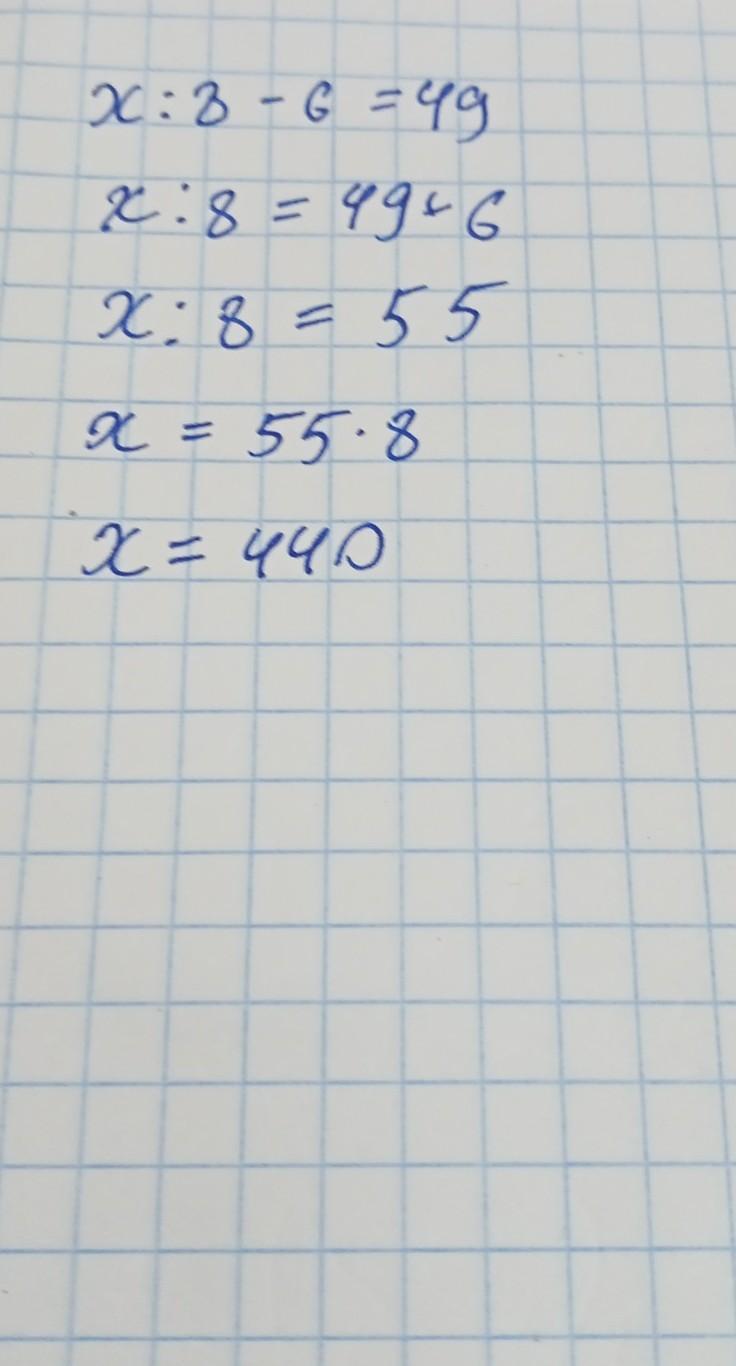 x:8 - 6 = 49
x:8 = 49+6
x:8 = 55
x = 55·8
x = 440